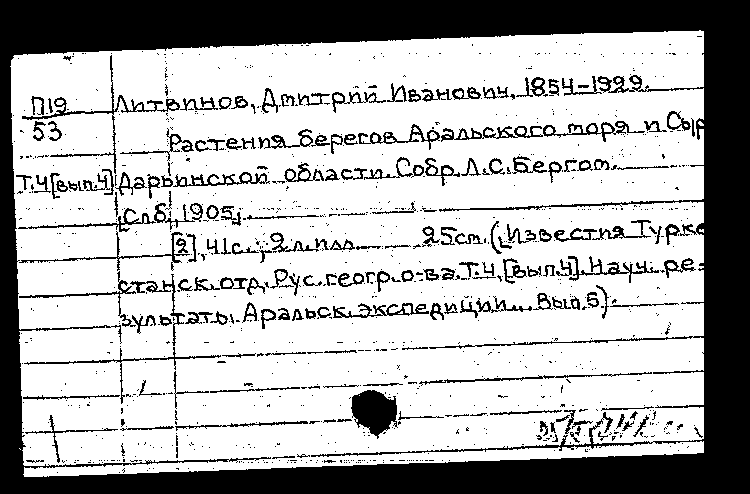 П19
53
Т.4[вып.4]
Литвинов, Дмитрий Иванович, 1854-1929.
Растения берегов Аральского моря и Сыр
Дарьинской области. Собр. Л.С.Бергом.
[Спб., 1905].
[2], 41с.; 2 л. илл. 25см. (Известия Турке
станск. отд. Рус. геогр. о-ва. Т.4, [вып.4]. Науч. ре-
зультаты Аральск. экспедиции... Вып.5).